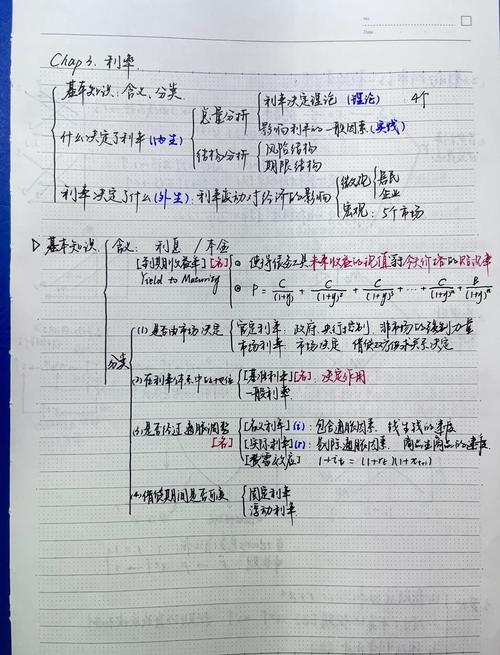 No.
Date
Chap 3. 利率.
基本知识：含义、分类
什么决定了利率(内生) 总量分析 利率决定理论 (理论) 4个
影响利率的一般因素(实践)
结构分析 风险结构
期限结构
利率决定了什么(外生)：利率波动对经济的影响 微观 居民
企业
宏观：5个市场
▷ 基本知识 含义：利息 / 本金
[到期收益率][名] ① 使得债务工具未来收益的现值等于今天价格的贴现率
Yield to Maturity ② P = C/(1+y) + C/(1+y)² + C/(1+y)³ + … + C/(1+y)ⁿ + B/(1+y)ⁿ
分类
(1) 是否由市场决定 官定利率：政府、央行控制，非市场的强制力量
市场利率：市场决定 借贷双方供求关系决定
(2) 在利率体系中的地位 [基准利率][名]：决定作用
一般利率
(3) 是否经过通胀调整 [名义利率](i)：包含通胀因素，钱生钱的速度
[名] [实际利率](r)：剔除通胀因素，商品生商品的速度
[费雪效应] 1+iₜ = (1+rₜ)(1+πₜ₊₁)
(4) 借贷期间是否可变 固定利率
浮动利率